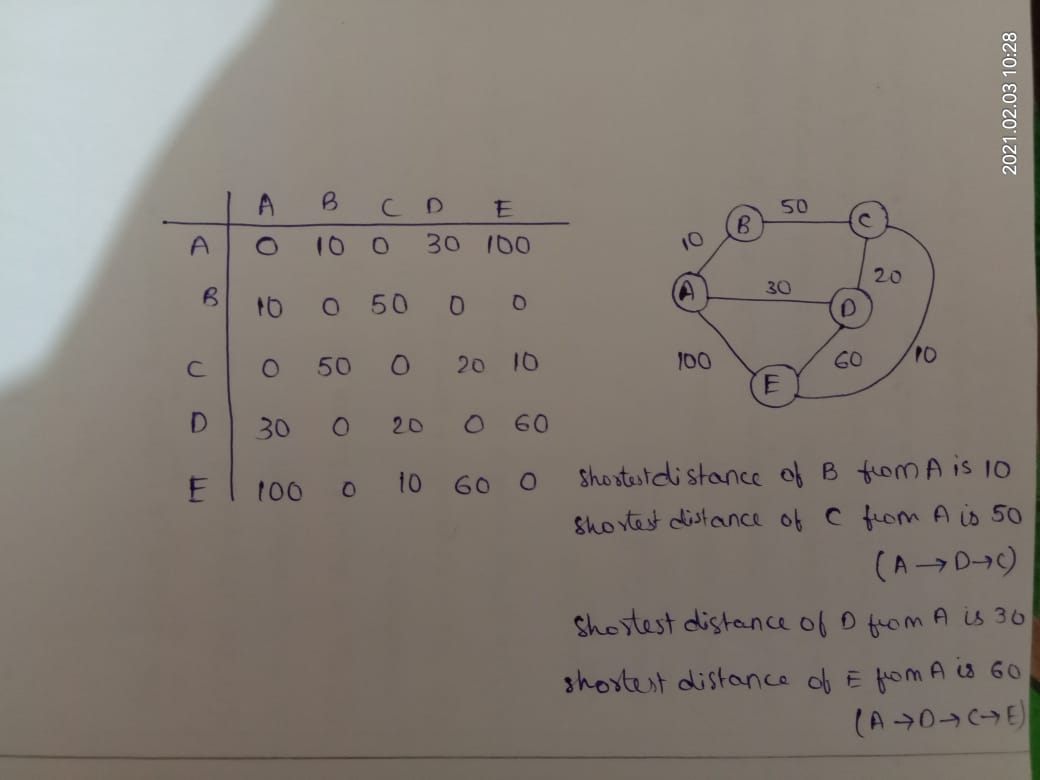 2021.02.03 10:28
A B C D E
A 0 10 0 30 100
B 10 0 50 0 0
C 0 50 0 20 10
D 30 0 20 0 60
E 100 0 10 60 0
B 50 C
10
A 30 D 20
100 E 60 10
Shortest distance of B from A is 10
Shortest distance of C from A is 50
(A → D → C)
Shortest distance of D from A is 30
shortest distance of E from A is 60
(A → D → C → E)